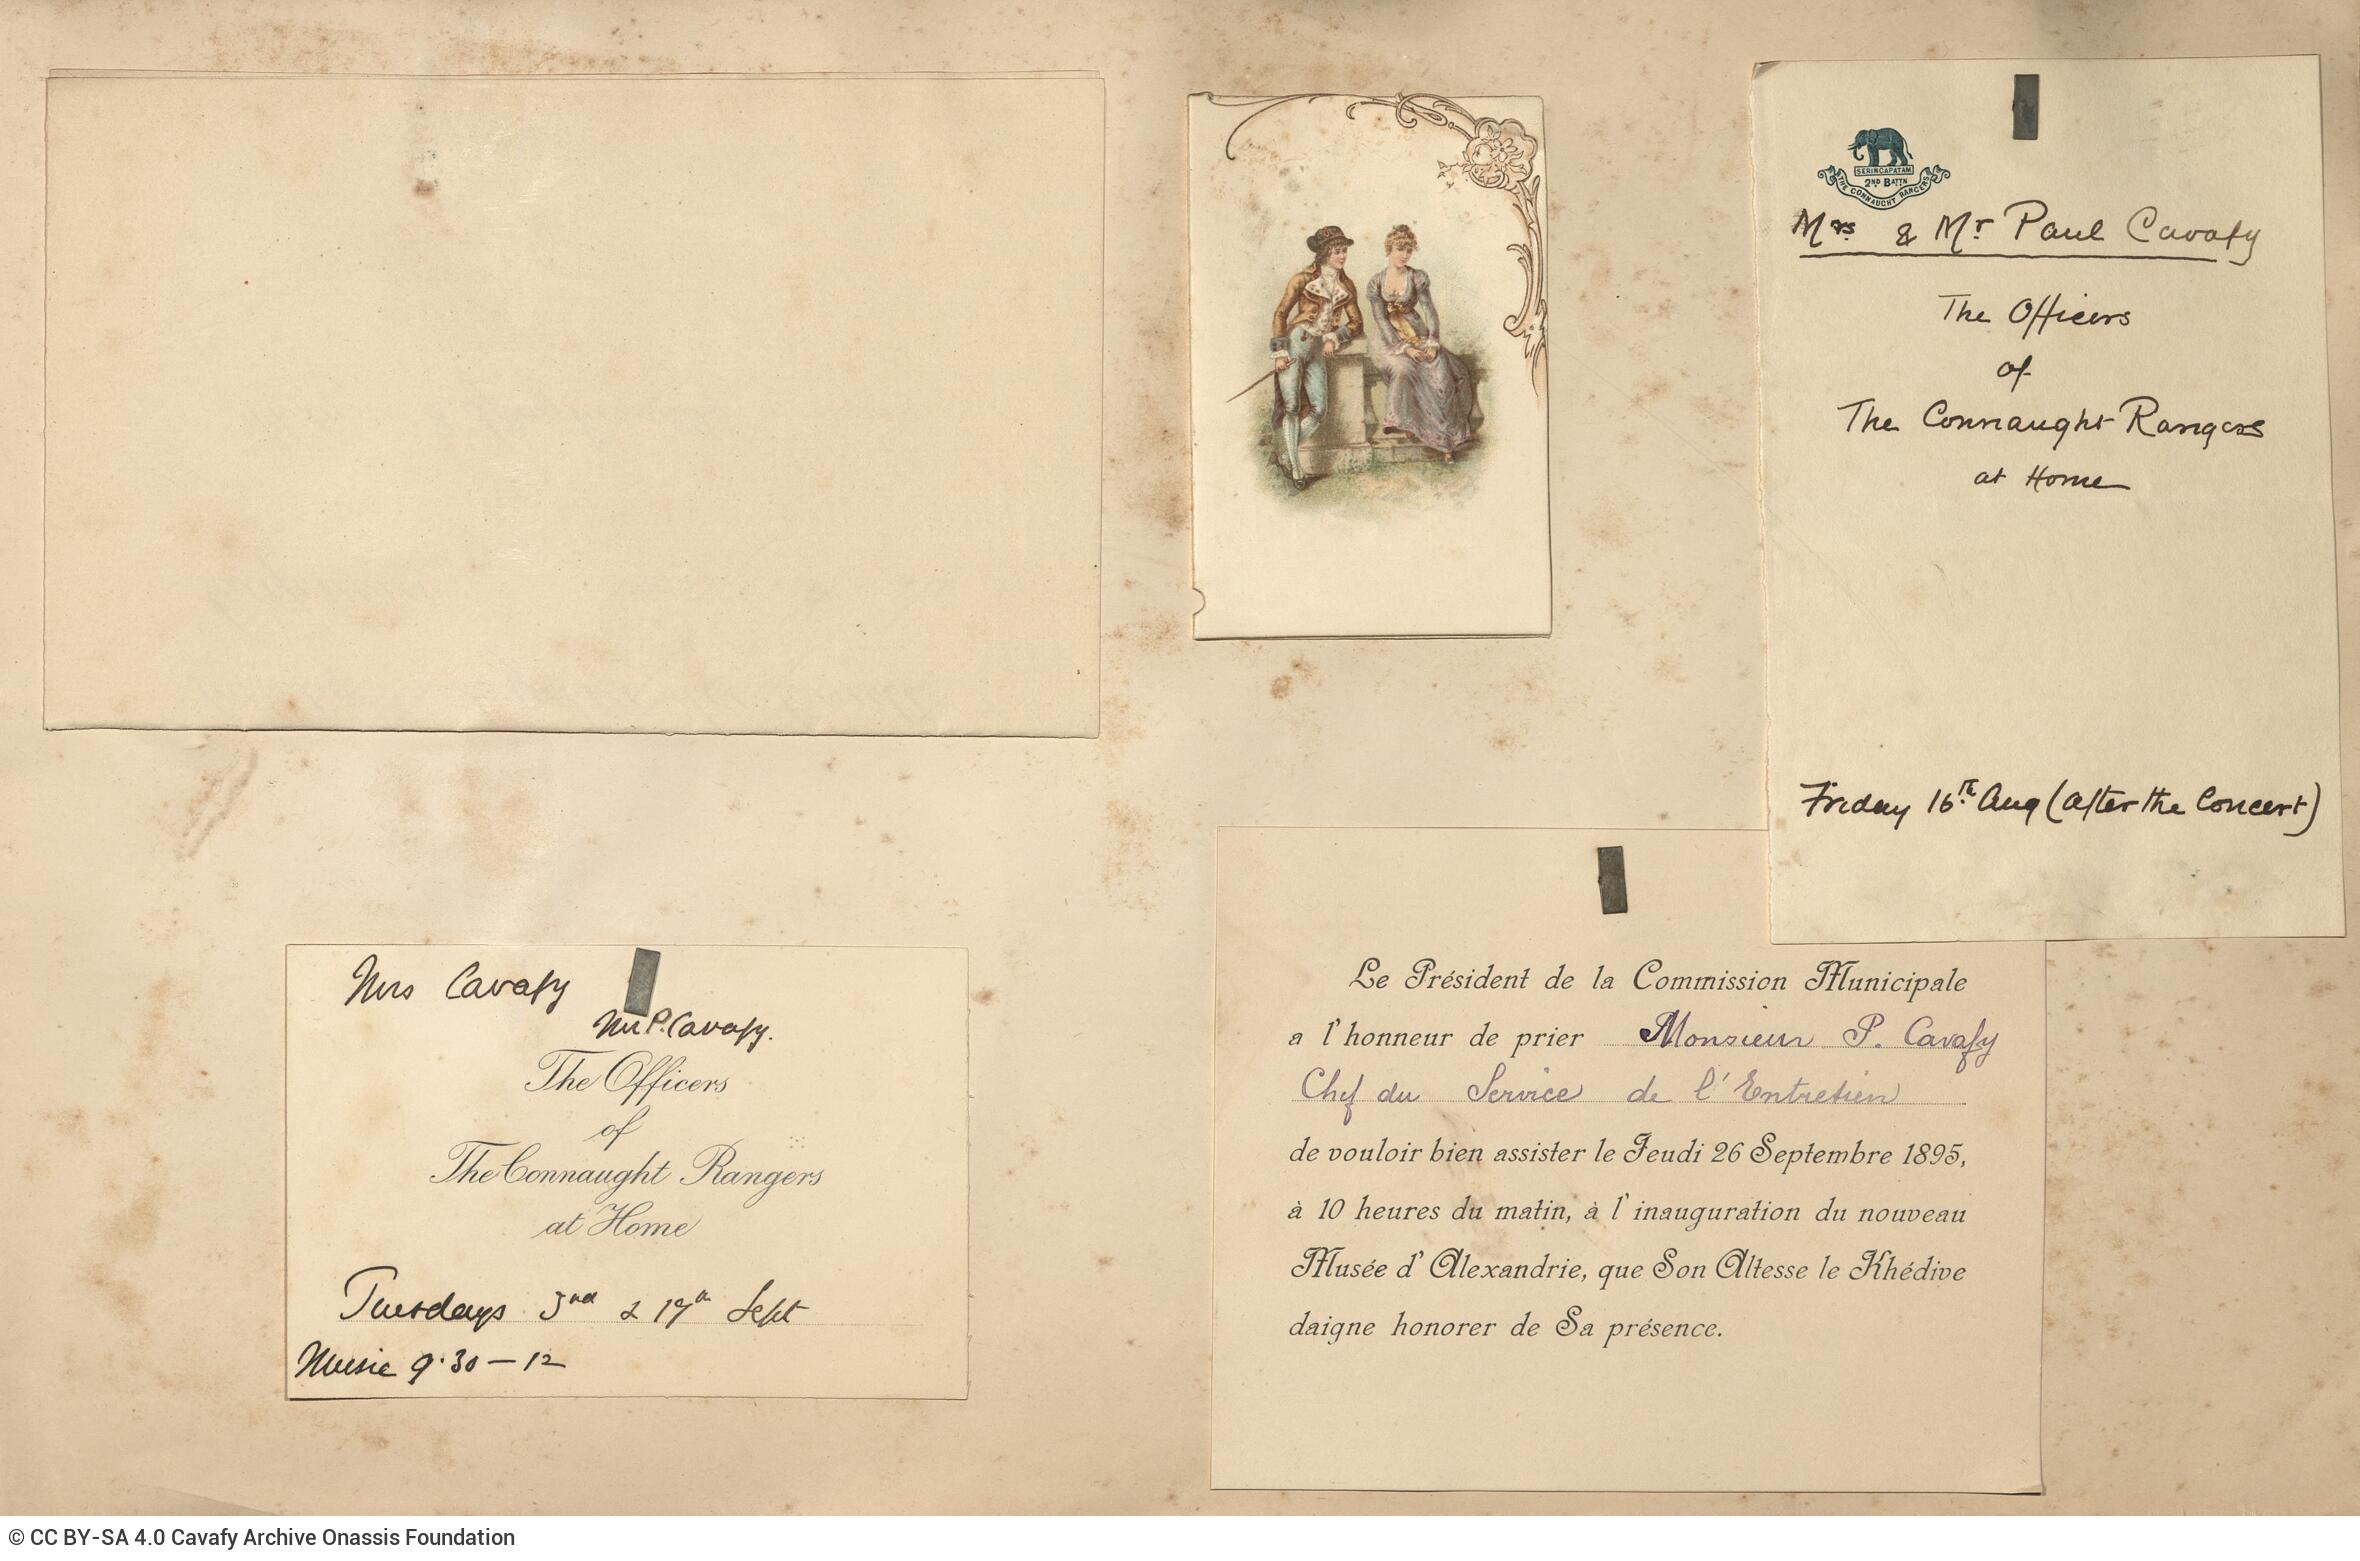 SERINGAPATAM
2ND BATTN
THE CONNAUGHT RANGERS
Mrs & Mr Paul Cavafy
The Officers
of
The Connaught Rangers
at Home
Friday 16th Aug (after the Concert)
Mrs Cavafy
Mr P. Cavafy.
The Officers
of
The Connaught Rangers
at Home
Tuesdays 3rd & 17th Sept
Music 9.30 – 12
Le Président de la Commission Municipale
a l'honneur de prier Monsieur P. Cavafy
Chef du Service de l'Entretien
de vouloir bien assister le Jeudi 26 Septembre 1895,
à 10 heures du matin, à l'inauguration du nouveau
Musée d'Alexandrie, que Son Altesse le Khédive
daigne honorer de Sa présence.
© CC BY-SA 4.0 Cavafy Archive Onassis Foundation